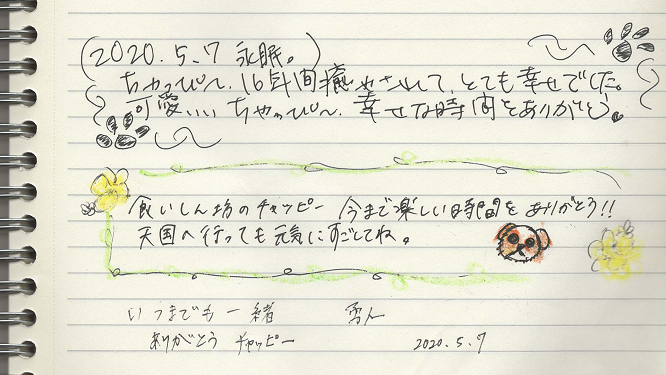 (2020.5.7 永眠。)
ちゃっぴ〜、16年間癒やされて、とても幸せでした。
可愛いい ちゃっぴ〜、幸せな時間をありがとう。
食いしん坊のチャッピー 今まで楽しい時間をありがとう!!
天国へ行っても元気にすごしてね。
いつまでも一緒
ありがとう チャッピー 2020.5.7